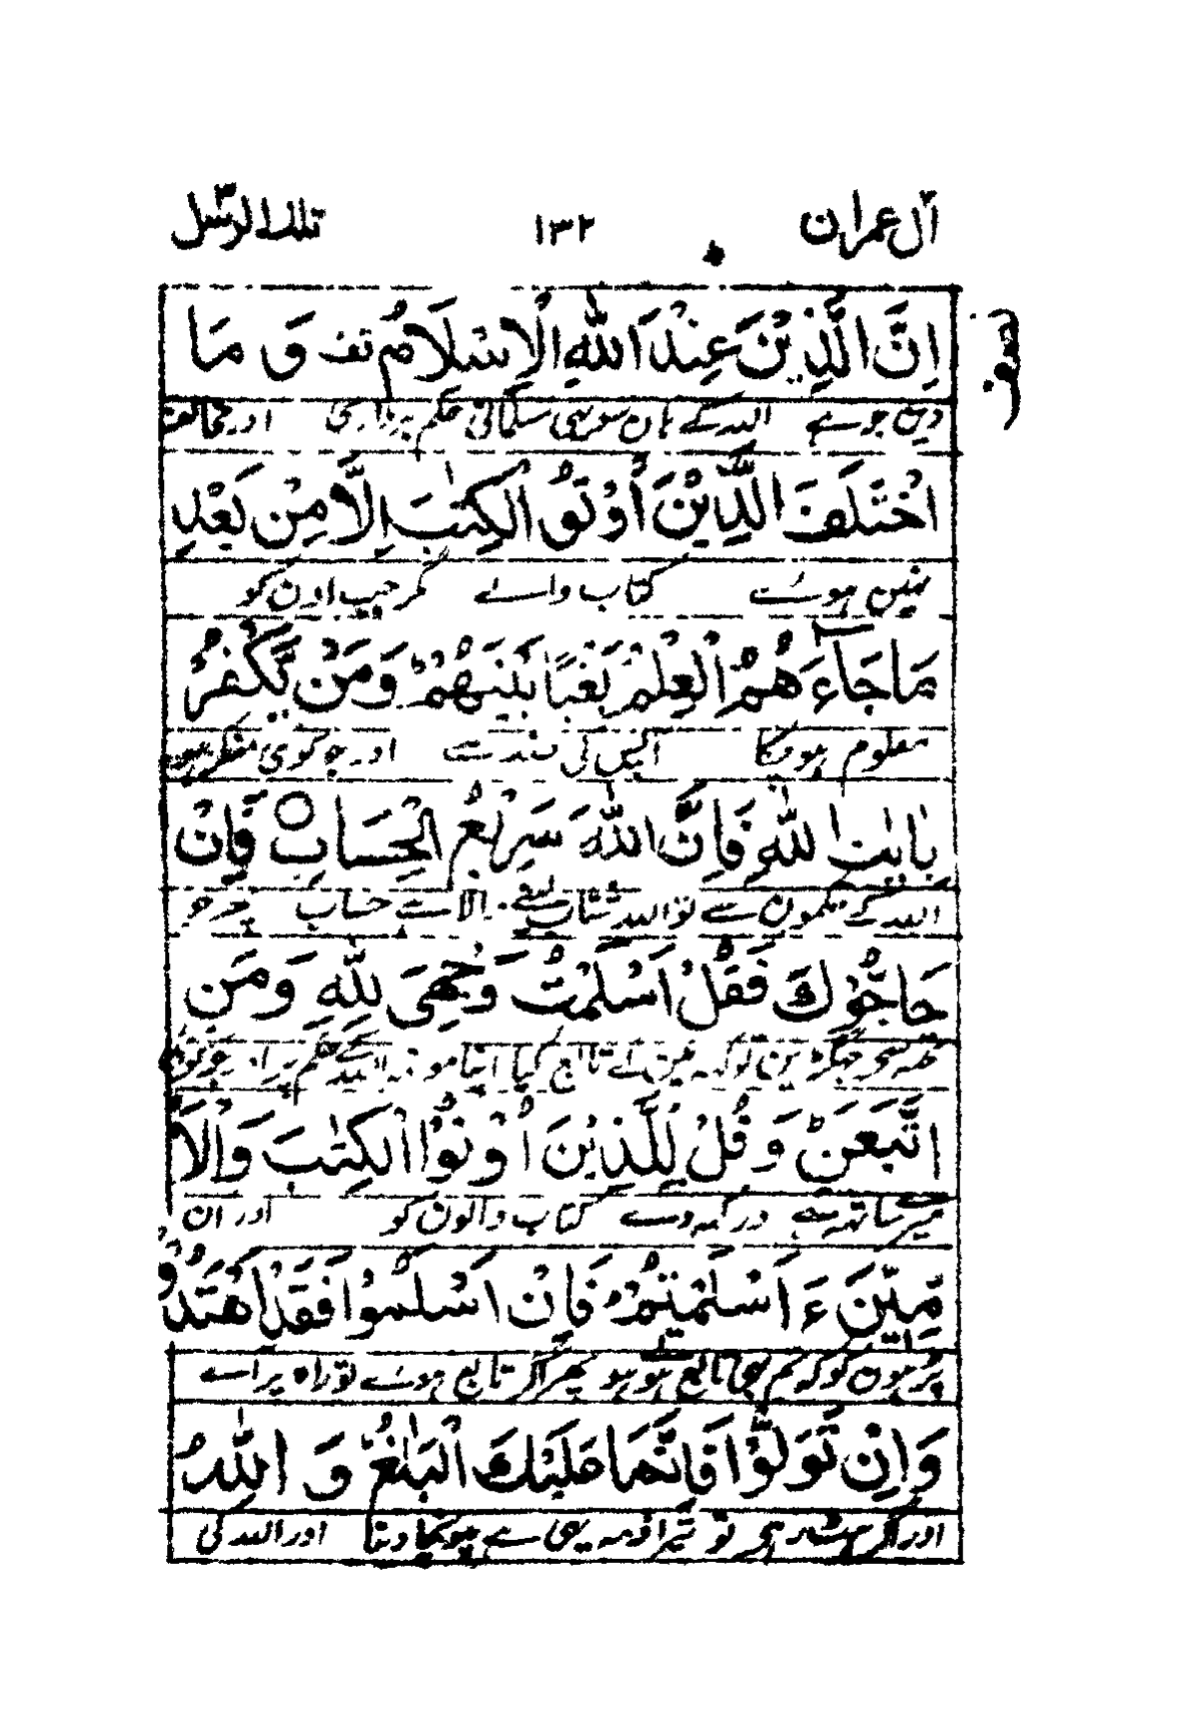 آل عمران ١٣٢ تلك الرسل ٣
اِنَّ الَّذِیْنَ عِنْدَ اللّٰهِ الْاِسْلَامُ تف وَ مَا
دین جو ہے اللہ کے ہاں سو یہی مسلمانی حکم برداری اور مخالف
اخْتَلَفَ الَّذِیْنَ اُوْتُوا الْكِتٰبَ اِلَّا مِنْ بَعْدِ
نہین ہوئے کتاب والے مگر جب اون کو
مَا جَآءَهُمُ الْعِلْمُ بَغْیًا بَیْنَهُمْ وَمَنْ یَّكْفُرْ
معلوم ہو چکا آپس کی ضد سے اور جو کوئی منکر ہو
بِاٰیٰتِ اللّٰهِ فَاِنَّ اللّٰهَ سَرِیْعُ الْحِسَابِ ○ فَاِنْ
اللہ کے حکمون سے تو اللہ شتاب لینے والا ہے حساب پھر جو
حَآجُّوْكَ فَقُلْ اَسْلَمْتُ وَجْهِیَ لِلّٰهِ وَمَنِ
تجھ سے جھگڑین تو کہہ مین نے تابع کیا اپنا مونہہ اللہ کے حکم پر اور
اتَّبَعَنِ وَ قُلْ لِّلَّذِیْنَ اُوْتُوا الْكِتٰبَ وَالْاُ
میرے ساتھ ہے اور کہہ دے کتاب والون کو اور ان
مِّیّٖنَ ءَ اَسْلَمْتُمْ فَاِنْ اَسْلَمُوْا فَقَدِ اهْتَدَوْ
پڑہون کو کہ تم بھی تابع ہوتے ہو پھر اگر تابع ہوئے تو راہ پر آئے
وَاِنْ تَوَلَّوْا فَاِنَّمَا عَلَیْكَ الْبَلٰغُ وَ اللّٰهُ
اور اگر ہٹ رہے تو تیرا ذمہ یہی ہے پہونچا دینا اور اللہ کی